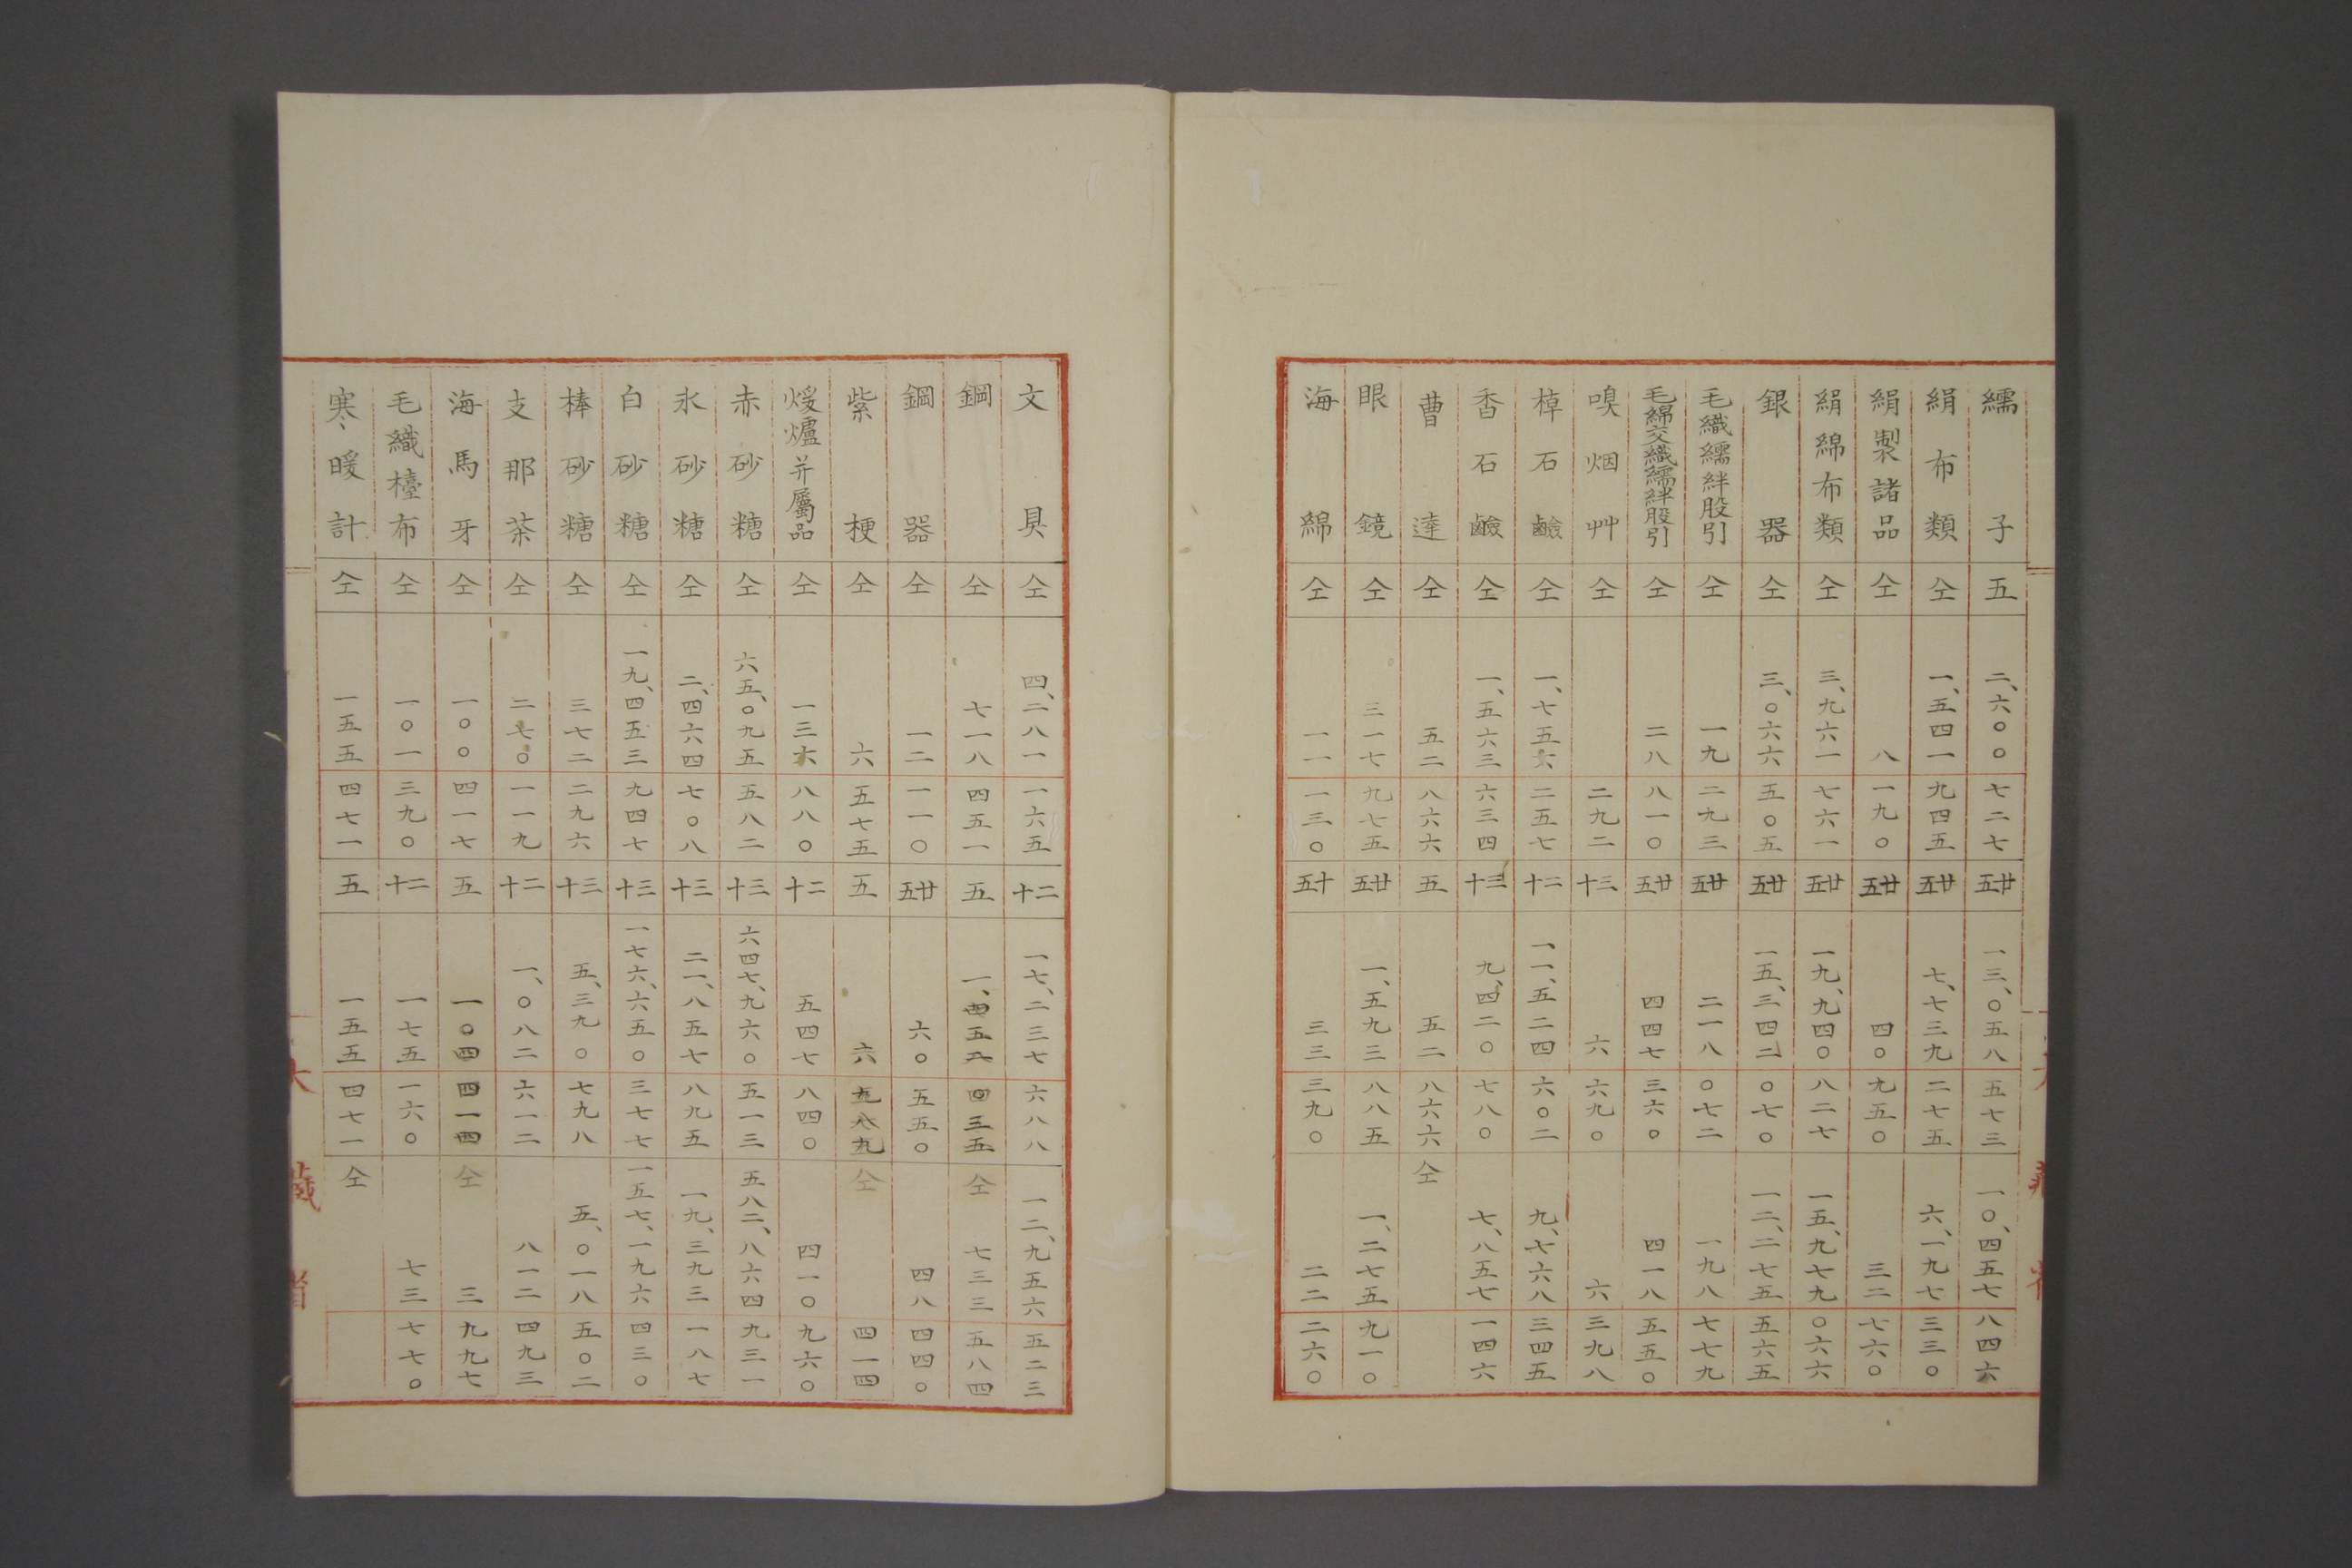 繻子 五 二、六〇〇 七二七 廿五 一三、〇五八 五七三 一〇、四五七 八四六
絹布類 仝 一、五四一 九四五 廿五 七、七三九 二七五 六、一九七 三三〇
絹製諸品 仝 八 一九〇 廿五 四〇 九五〇 三二 七六〇
絹綿布類 仝 三、九六一 七六一 廿五 一九、九四〇 八二七 一五、九七九 〇六六
銀器 仝 三、〇六六 五〇五 廿五 一五、三四二 〇七〇 一二、二七五 五六五
毛織繻絆股引 仝 一九 二九三 廿五 二一八 〇七二 一九八 七七九
毛綿交織繻絆股引 仝 二八 八一〇 廿五 四四七 三六〇 四一八 五五〇
嗅烟艸 仝 二九二 十三 六 六九〇 六 三九八
棹石鹼 仝 一、七五六 二五七 十二 一一、五二四 六〇二 九、七六八 三四五
香石鹼 仝 一、五六三 六三四 十三 九、四二〇 七八〇 七、八五七 一四六
曹達 仝 五二 八六六 五 五二 八六六 仝
眼鏡 仝 三一七 九七五 廿五 一、五九三 八八五 一、二七五 九一〇
海綿 仝 一一 一三〇 十五 三三 三九〇 二二 二六〇
文具 仝 四、二八一 一六五 十二 一七、二三七 六八八 一二、九五六 五二三
鋼 仝 七一八 四五一 五 一、四五六 〇三五 仝 七三三 五八四
鋼器 仝 一二 一一〇 廿五 六〇 五五〇 四八 四四〇
紫梗 仝 六 五七五 五 六 九八九 仝 四一四
煖爐并屬品 仝 一三六 八八〇 十二 五四七 八四〇 四一〇 九六〇
赤砂糖 仝 六五、〇九五 五八二 十三 六四七、九六〇 五一三 五八二、八六四 九三一
氷砂糖 仝 二、四六四 七〇八 十三 二一、八五七 八九五 一九、三九三 一八七
白砂糖 仝 一九、四五三 九四七 十三 一七六、六五〇 三七七 一五七、一九六 四三〇
棒砂糖 仝 三七二 二九六 十三 五、三九〇 七九八 五、〇一八 五〇二
支那茶 仝 二七〇 一一九 十二 一、〇八二 六一二 八一二 四九三
海馬牙 仝 一〇〇 四一七 五 一〇四 四一四 仝 三 九九七
毛織檯布 仝 一〇一 三九〇 十二 一七五 一六〇 七三 七七〇
寒暖計 仝 一五五 四七一 五 一五五 四七一 仝
大藏省